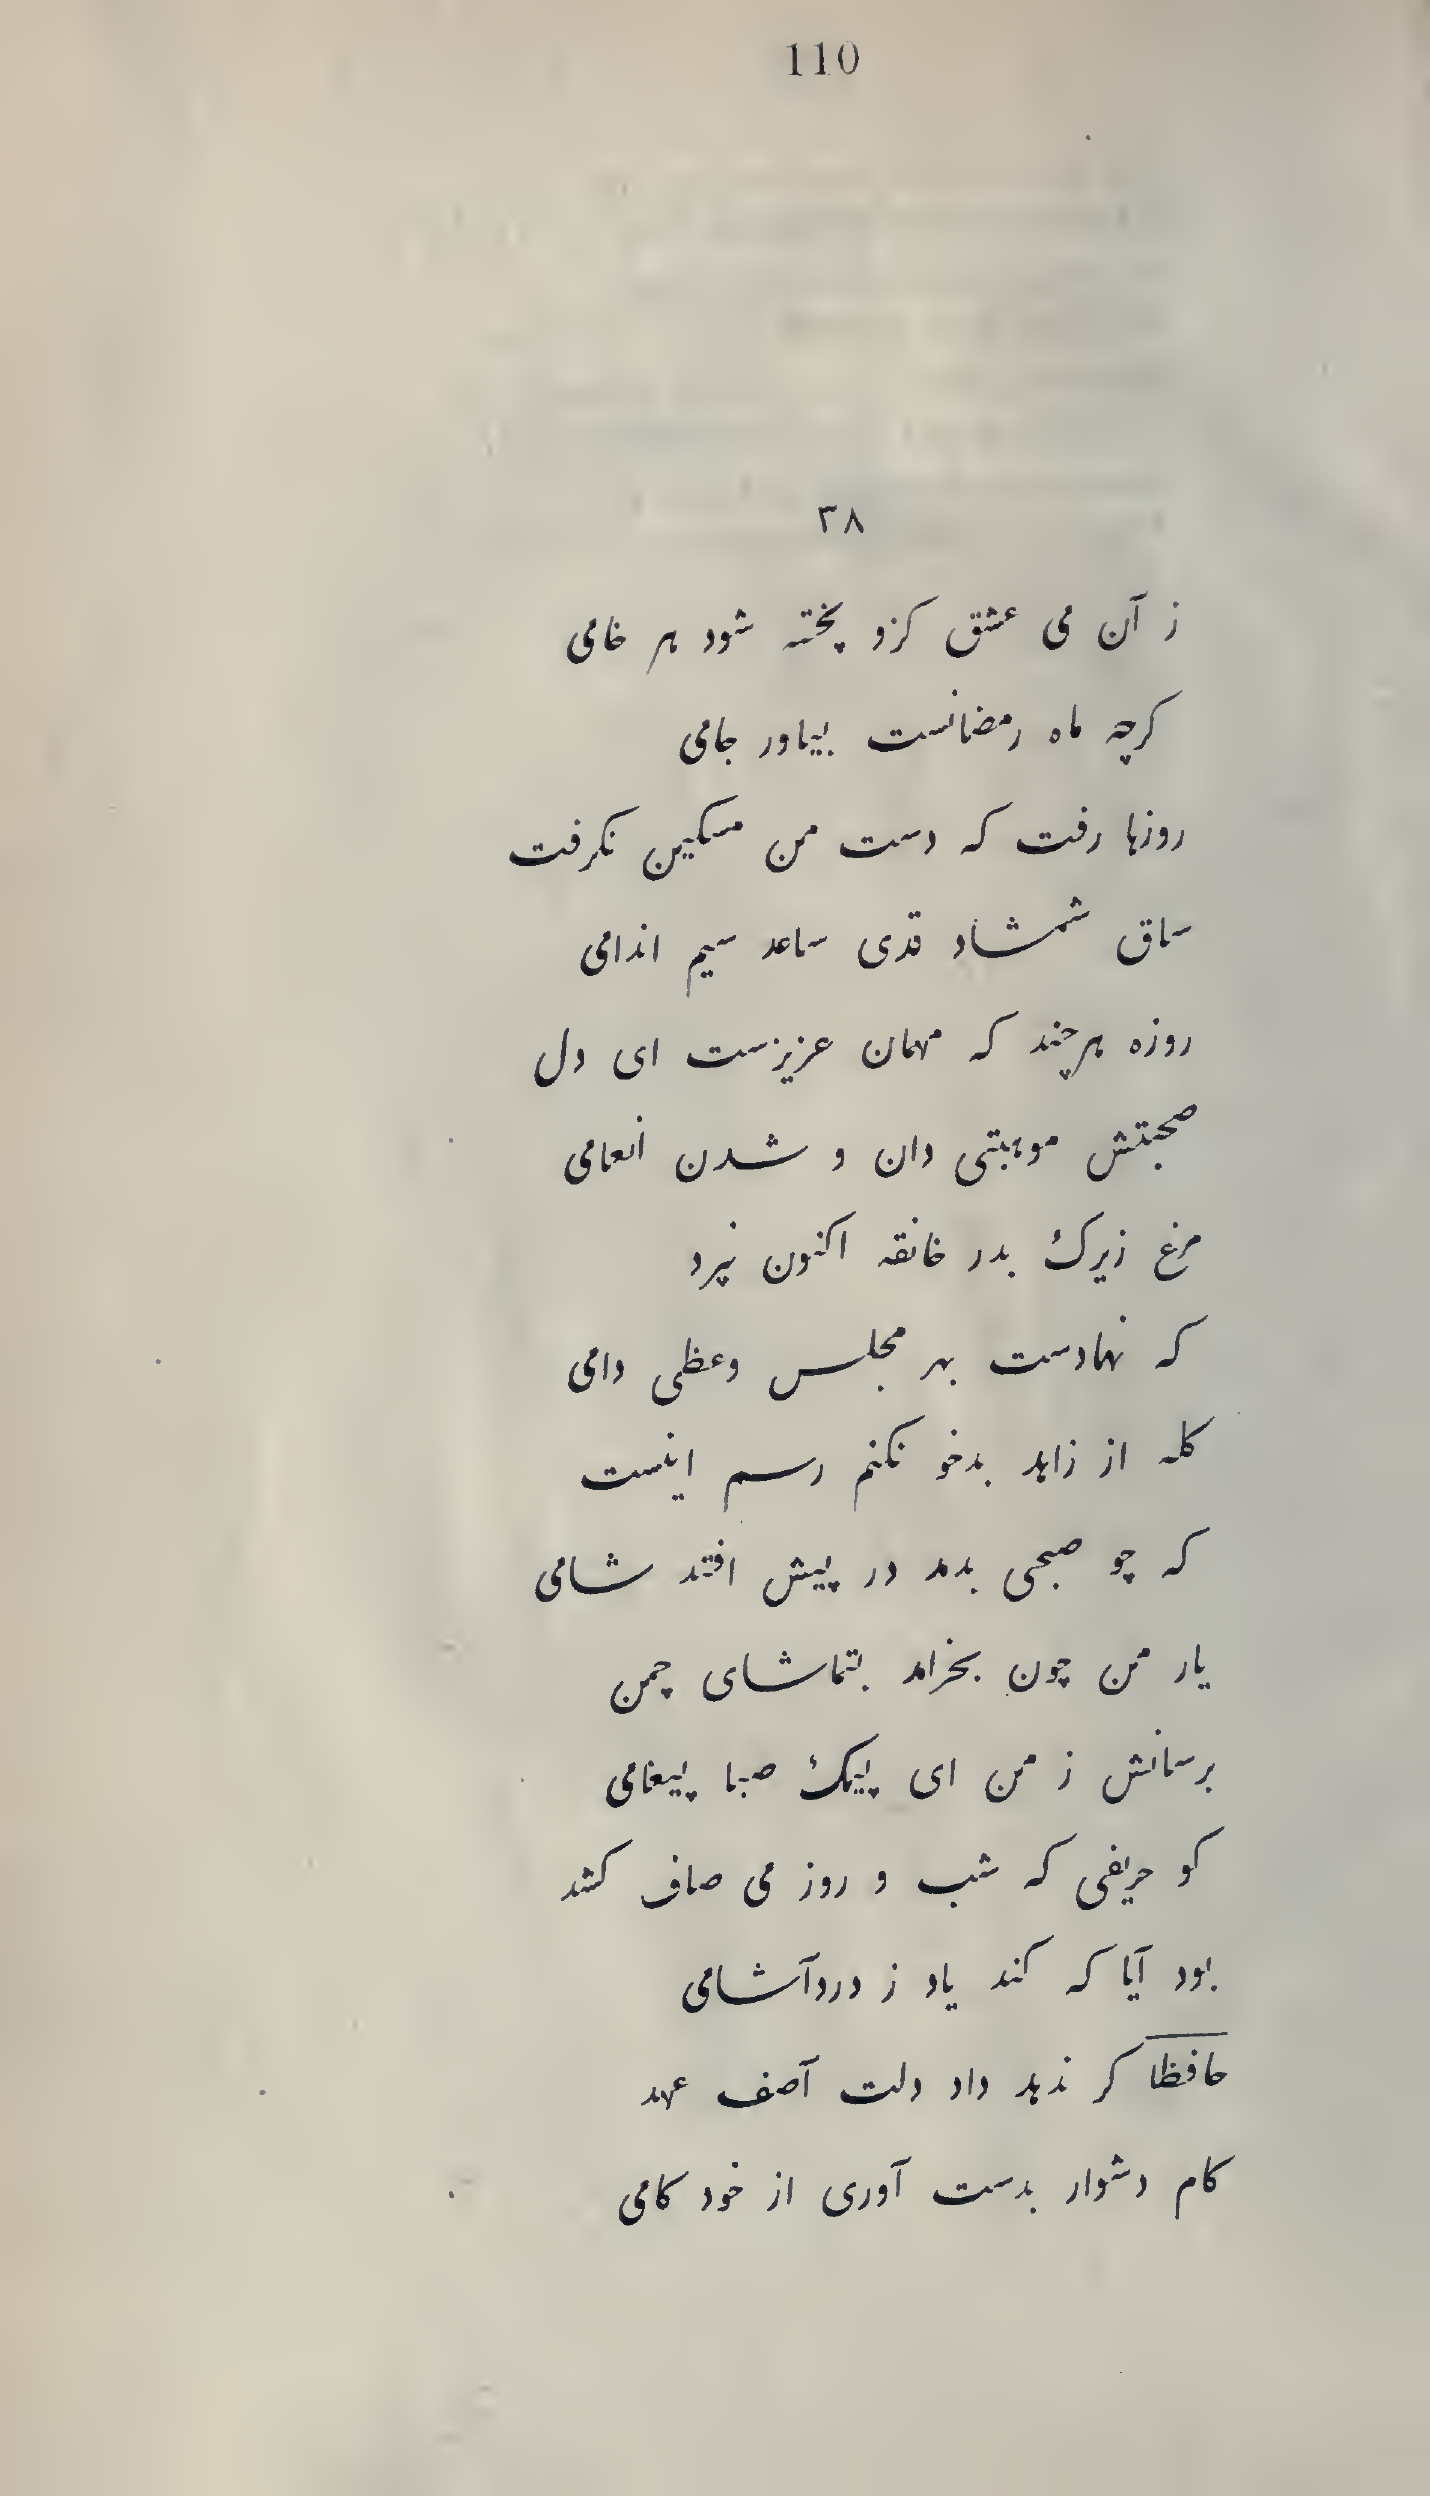 110
۳۸
ز آن می عشق کزو پخته شود هر خامی
کرچه ماه رمضانست بیاور جامی
روزها رفت که دست من مسکین نکرفت
ساق شمشاد قدی ساعد سیم اندامی
روزه هرچند که مهمان عزیزست ای دل
صحبتش موهبتی دان و شدن انعامی
مرغ زیرک بدر خانقه اکنون نپرد
که نهادست بهر مجلس وعظی دامی
کله از زاهد بدخو نکنم رسم اینست
که چو صبحی بدمد در پیش افتد شامی
یار من چون بخرامد بتماشای چمن
برسانش ز من ای پیک صبا پیغامی
کو حریفی که شب و روز می صاف کشد
بود آیا که کند یاد ز دردآشامی
حافظا کر ندهد داد دلت آصف عهد
کام دشوار بدست آوری از خود کامی